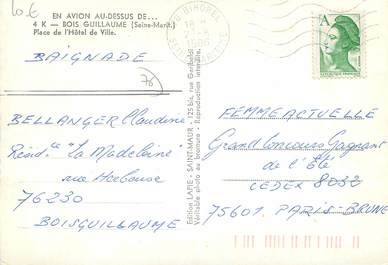 10 €
EN AVION AU-DESSUS DE...
4 K — BOIS GUILLAUME (Seine-Marit.)
Place de l'Hôtel de Ville.
BAIGNADE
76
BELLANGER Claudine
Résid.ce "La Madeleine"
rue Herbeuse
76230
BOISGUILLAUME
Edition LAPIE - SAINT-MAUR - 125 bis, rue Garibaldi
Véritable photo au bromure - Reproduction interdite.
BIHOREL
A
FEMME ACTUELLE
Grand Concours Gagnant
de l'Eté
CEDEX 8032
75601 PARIS-BRUNE